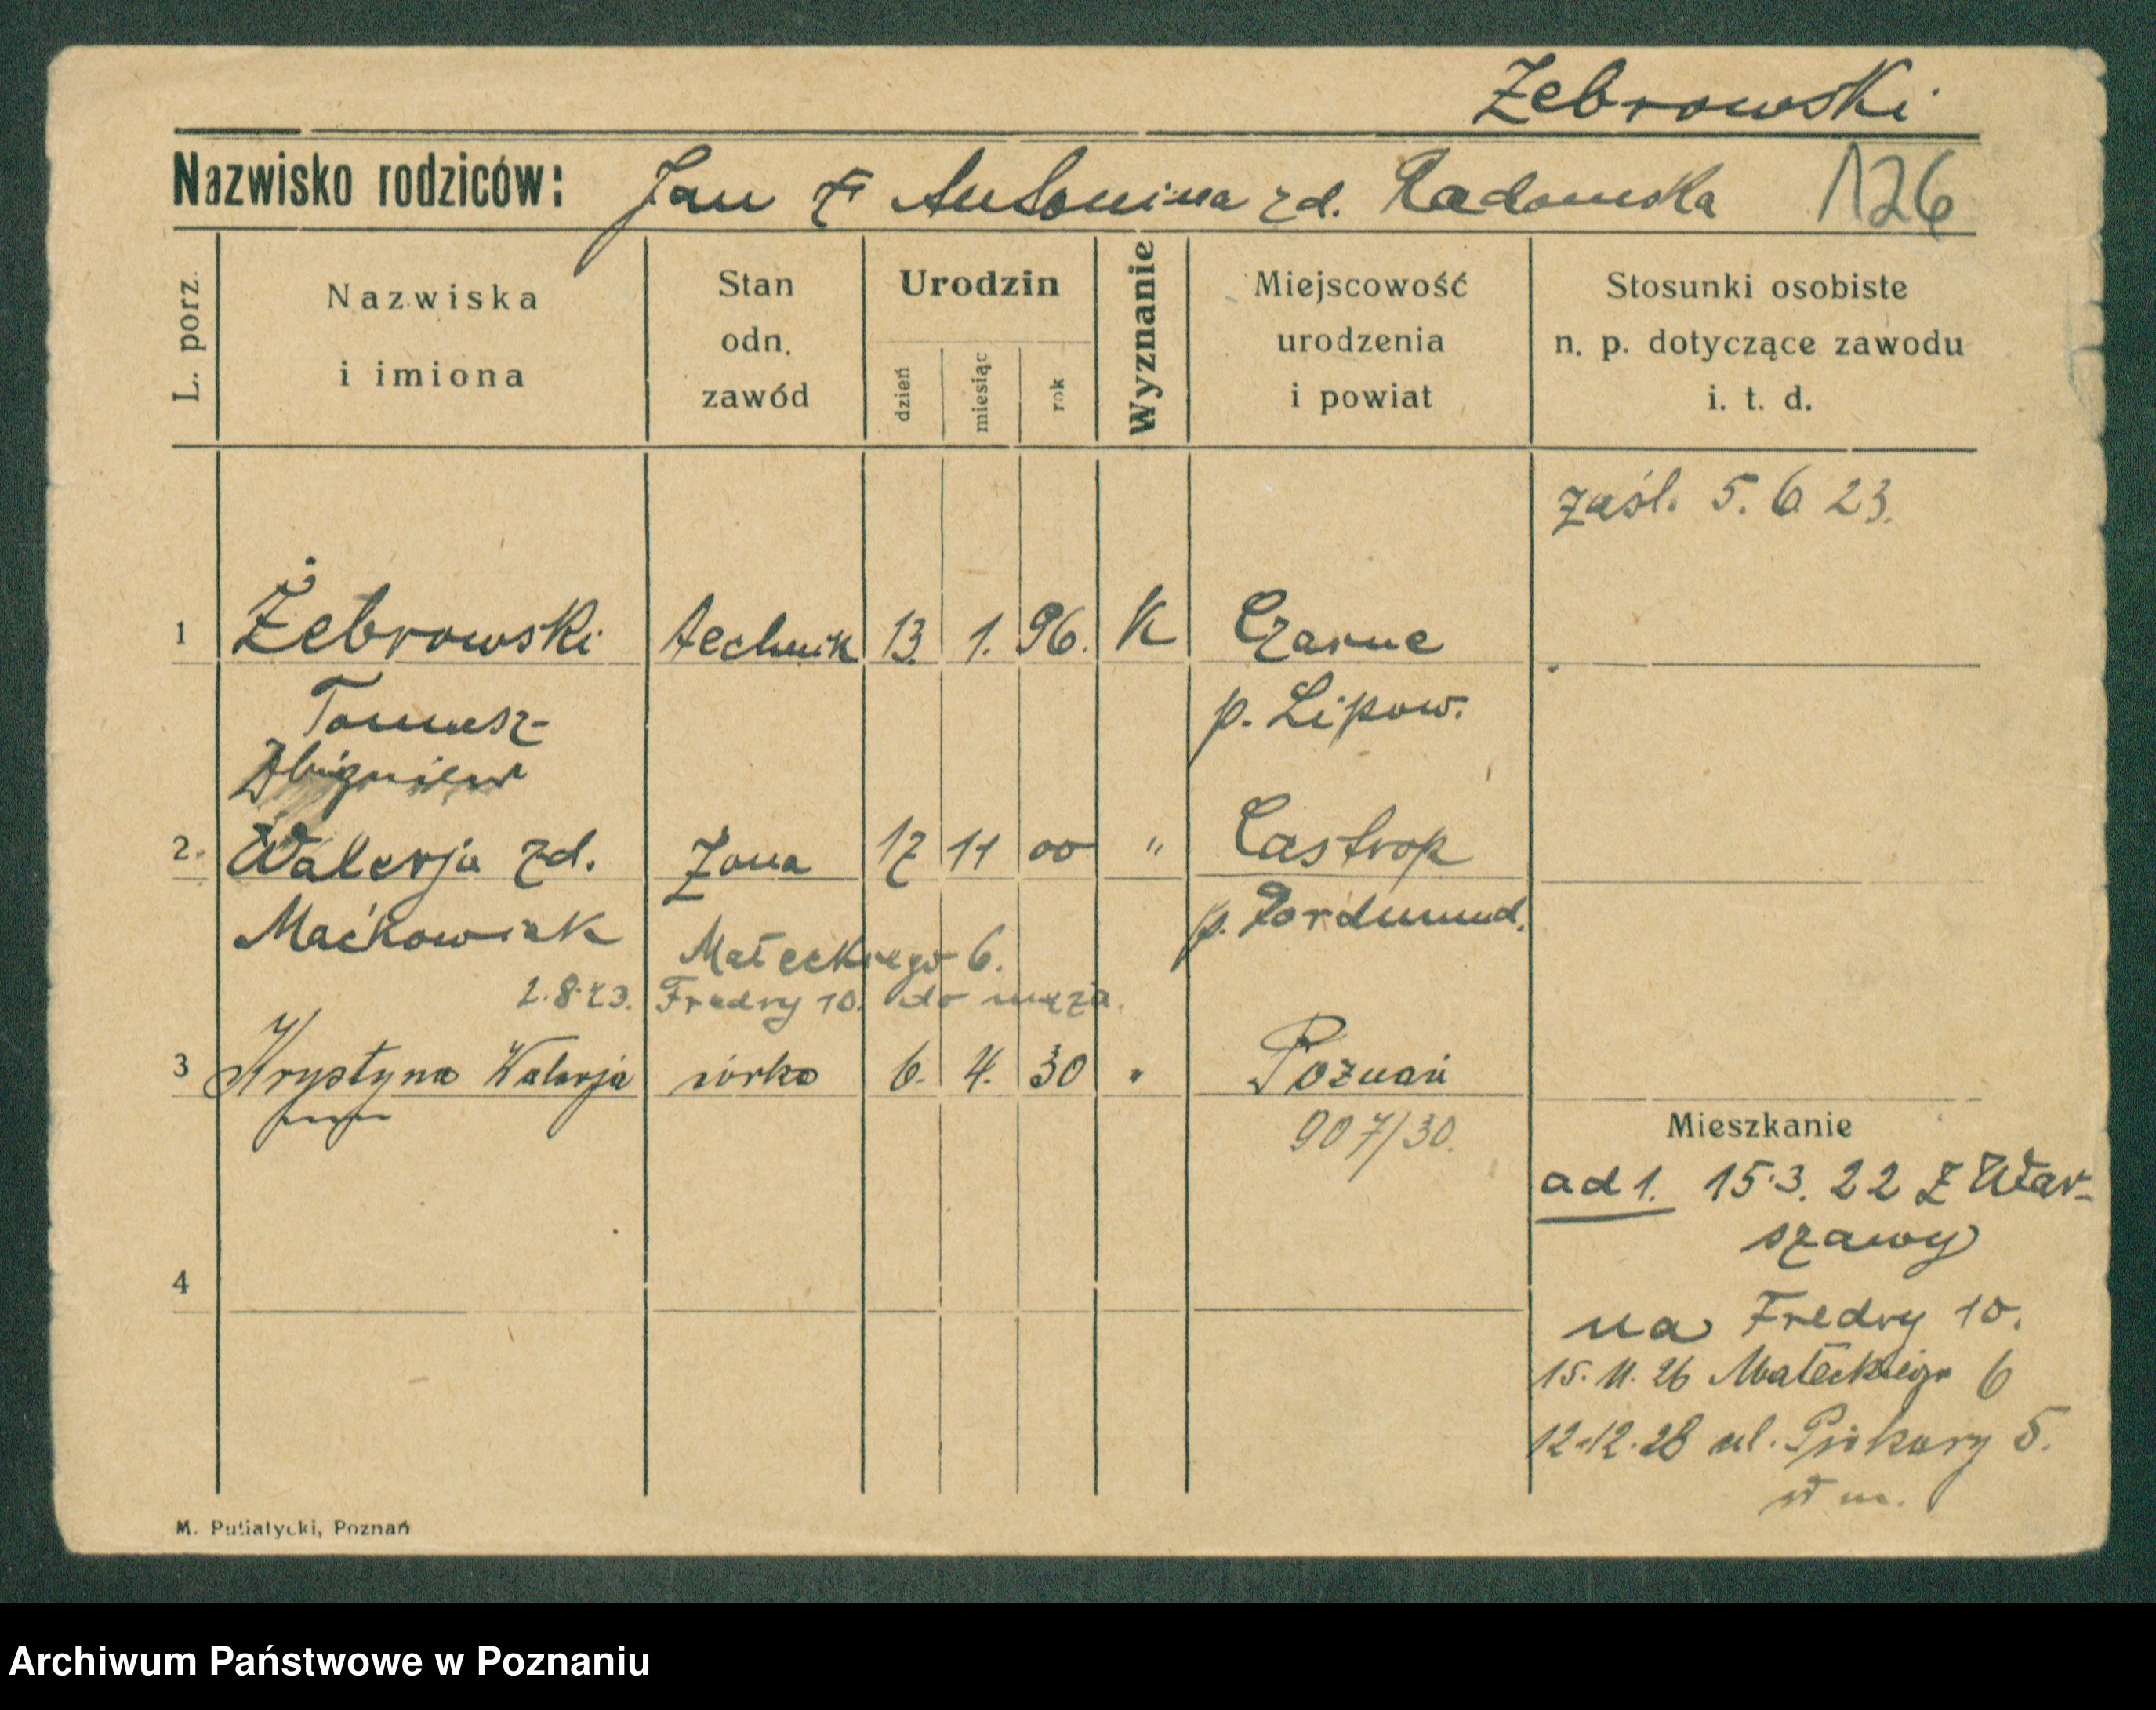 Żebrowski
Nazwisko rodziców: Jan & Antonina zd. Radomska 126
L. porz. Nazwiska i imiona Stan odn. zawód Urodzin dzień miesiąc rok Wyznanie Miejscowość urodzenia i powiat Stosunki osobiste n. p. dotyczące zawodu i. t. d.
zaśl. 5. 6 23.
1 Żebrowski technik 13. 1. 96. K Czarne
Tomasz- p. Lipow.
Zbigniew
2. Walerja zd. żona 17 11 00 " Castrop
Maćkowiak p. Dordmund.
Małeckiego 6.
2.8.23. Fredry 10. do męża.
3 Krystyna Walerja córka 6. 4. 30 " Poznań
907/30.
Mieszkanie
ad 1. 15.3. 22 z War-
szawy
4
na Fredry 10.
15. 11. 26 Małeckiego 6
12.12.28 ul. Piekary 5.
M. Putiatycki, Poznań
Archiwum Państwowe w Poznaniu